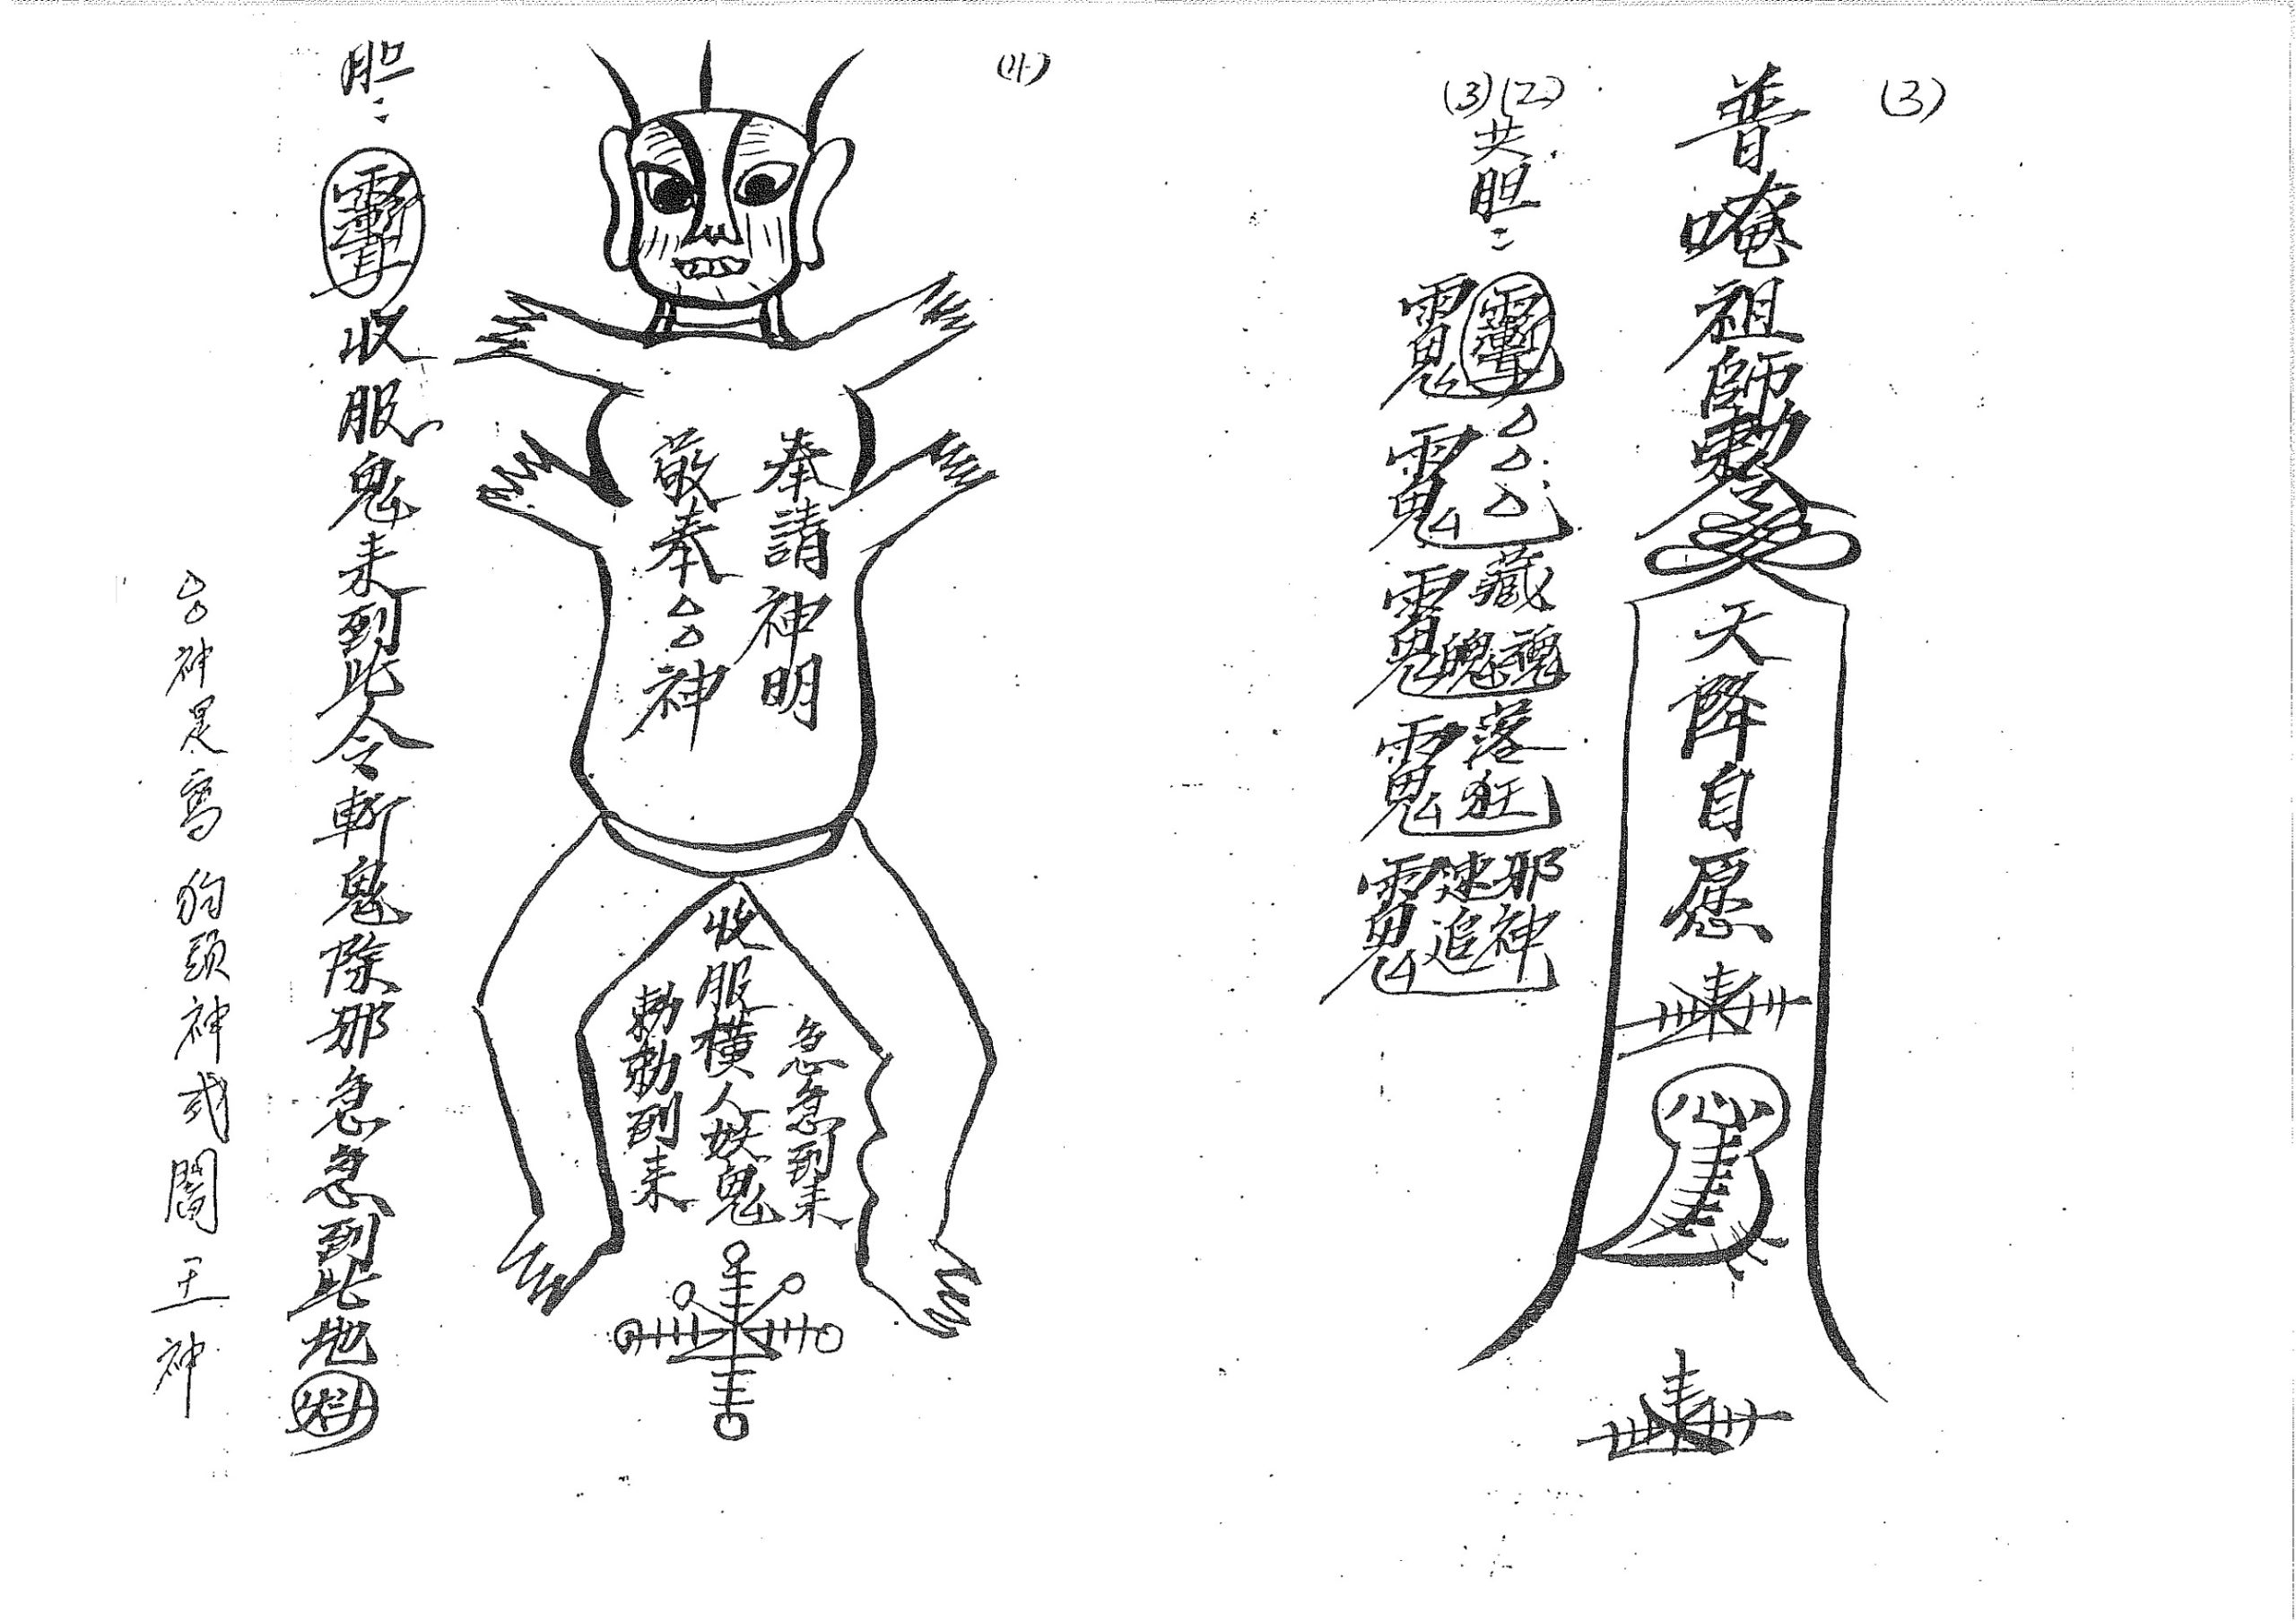 (3)
普唵祖師勅
天降自愿
心
(3)(2)共胆:
藏魂魄
落狂
邪神速追
(4)
奉請神明
敬奉△△神
急急到来
收服橫人妖鬼
勅勅到来
胆:
收服鬼未到此令斬鬼除邪急急到此地
△△神是寫狗頭神或閻王神